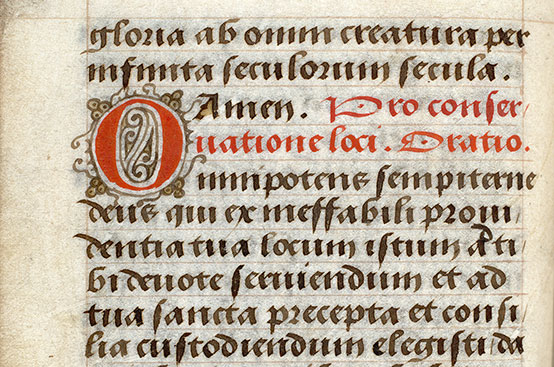 gloria ab omni creatura per
infinita seculorum secula.
Amen. Pro conser
uatione loci. Oratio.
Omnipotens sempiterne
deus qui ex ineffabili proui
dentia tua locum istum ad ti
bi deuote seruiendum et ad
tua sancta precepta et consi
lia custodiendum elegisti da